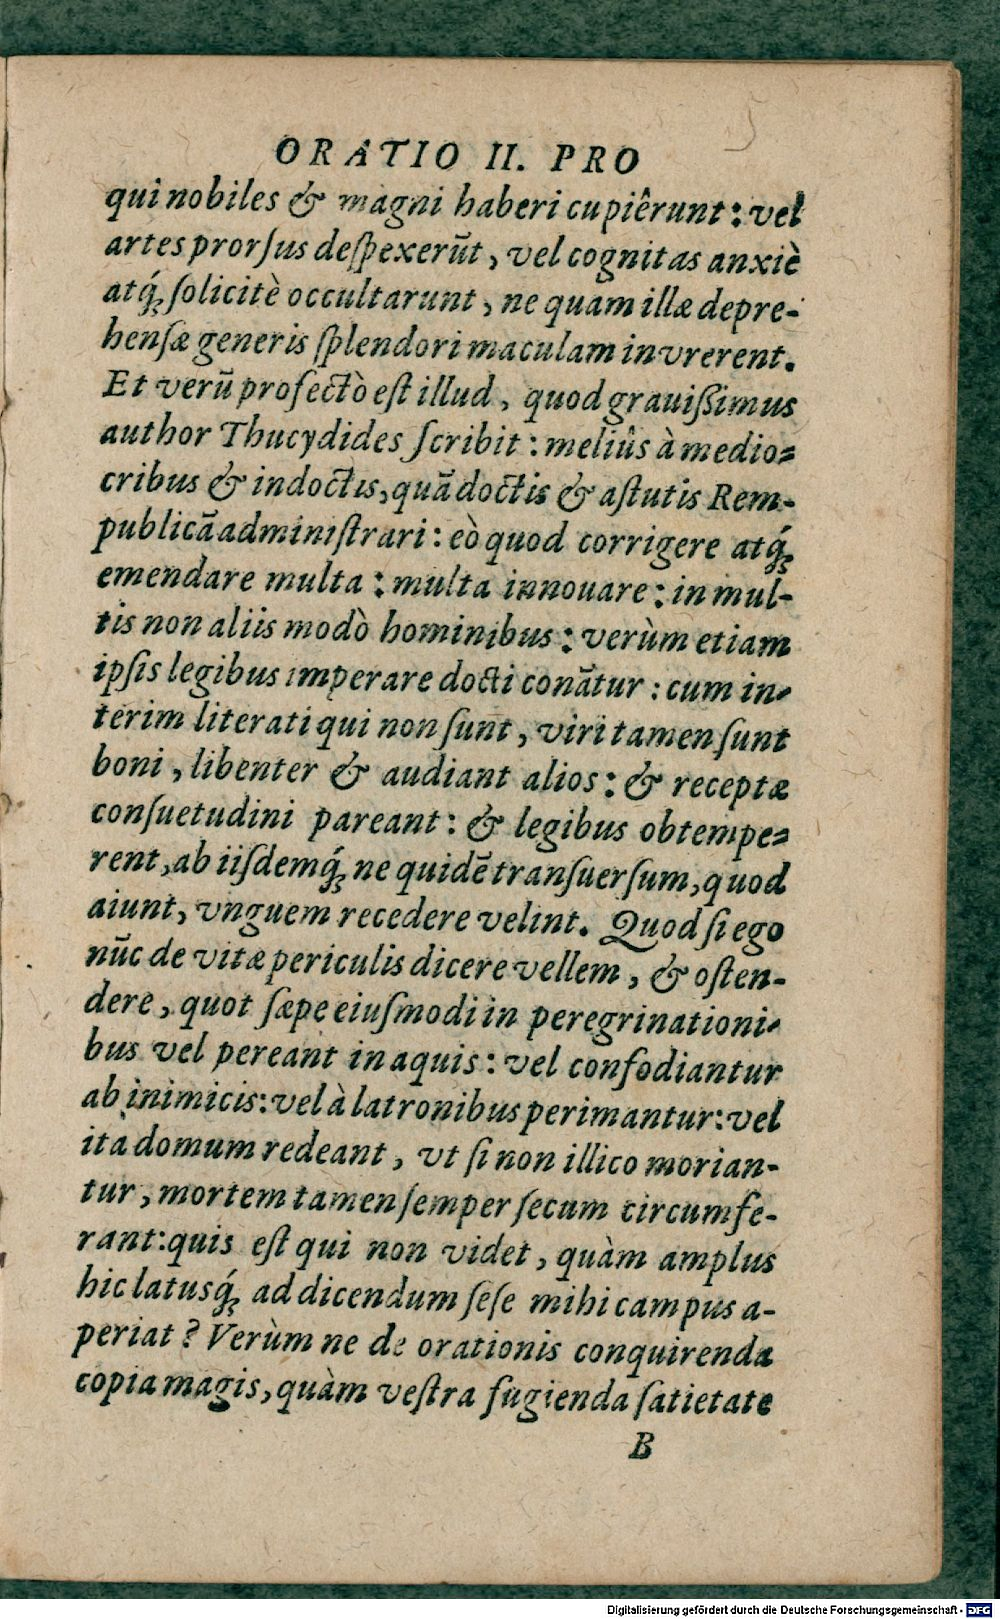 ORATIO II. PRO
qui nobiles & magni haberi cupiêrunt: vel
artes prorſus deſpexerūt, vel cognitas anxiè
atq́ꝫ ſolicitè occultarunt, ne quam illæ depre-
henſæ generis ſplendori maculam invrerent.
Et verū profectò eſt illud, quod grauiſſimus
author Thucydides ſcribit: meliûs à medio-
cribus & indoctis, quā doctis & aſtutis Rem-
publicā adminiſtrari: eò quod corrigere atq́ꝫ
emendare multa: multa innouare: in mul-
tis non aliis modò hominibus: verùm etiam
ipſis legibus imperare docti conātur: cum in-
terim literati qui non ſunt, viri tamen ſunt
boni, libenter & audiant alios: & receptæ
conſuetudini pareant: & legibus obtempe-
rent, ab iiſdemq́ꝫ ne quidē tranſuerſum, quod
aiunt, vnguem recedere velint. Quod ſi ego
nūc de vitæ periculis dicere vellem, & oſten-
dere, quot ſæpe eiuſmodi in peregrinationi-
bus vel pereant in aquis: vel confodiantur
ab inimicis: vel à latronibus perimantur: vel
ita domum redeant, vt ſi non illico morian-
tur, mortem tamen ſemper ſecum circumfe-
rant: quis eſt qui non videt, quàm amplus
hic latusq́ꝫ ad dicendum ſeſe mihi campus a-
periat? Verùm ne de orationis conquirenda
copia magis, quàm veſtra fugienda ſatietate
B
Digitalisierung gefördert durch die Deutsche Forschungsgemeinschaft - DFG